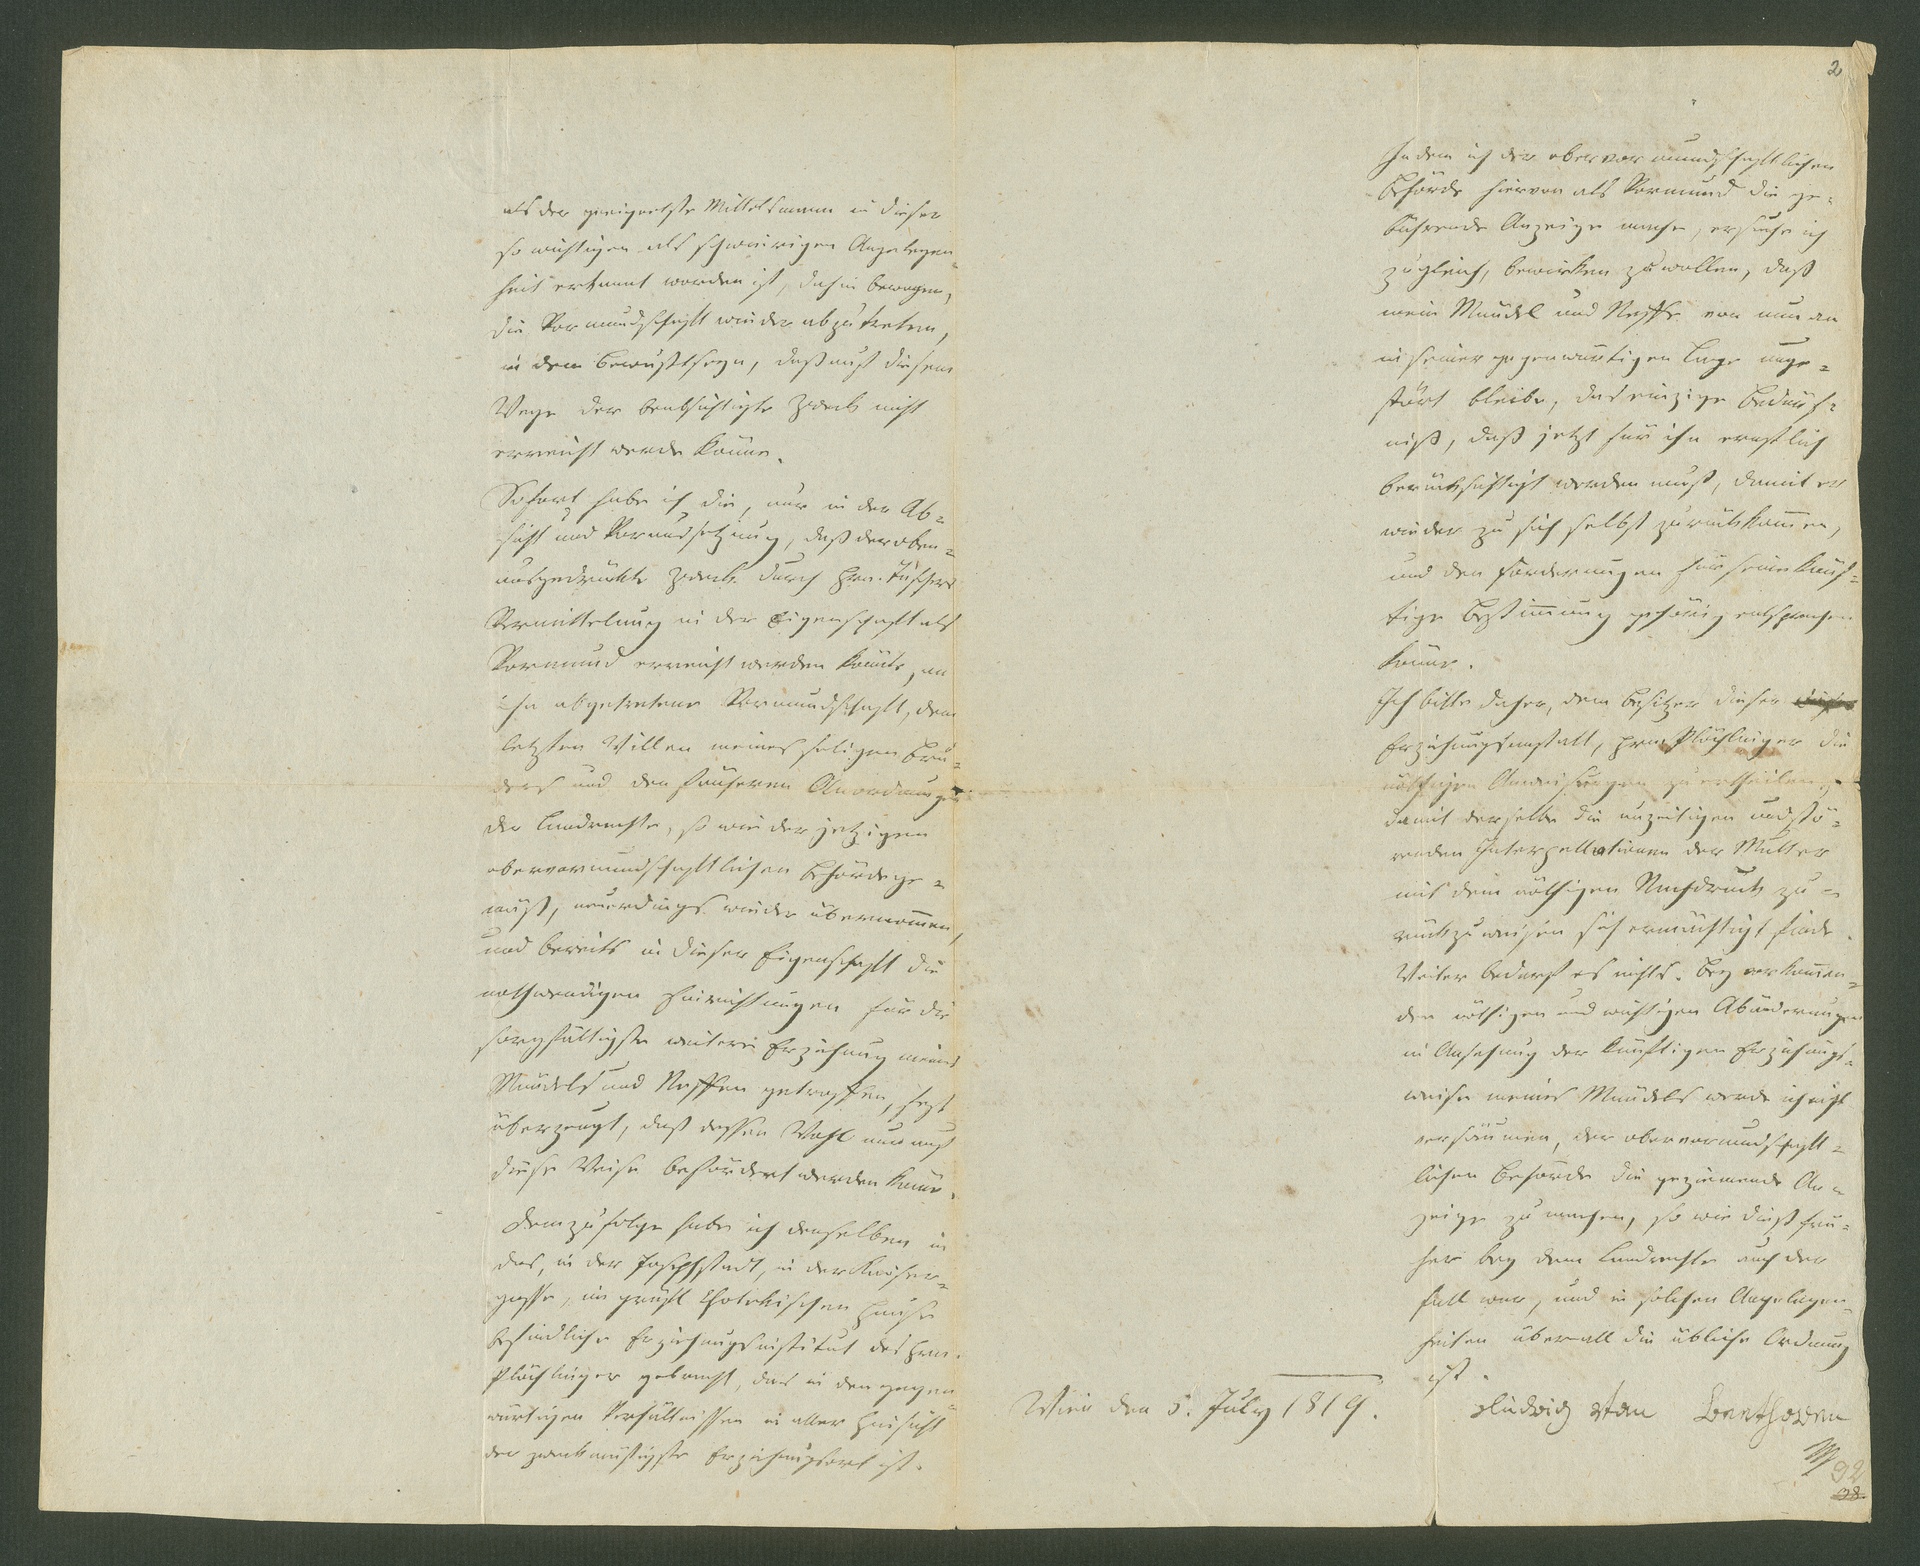 als der geeignetste Mittelsmann in dieser
so wichtigen als schwierigen Angelegen=
heit erkannt worden ist, dahin bewogen,
die Vormundschafft wieder abzutreten,
in dem Bewußtseyn, daß auf diesem
Wege der beabsichtigte Zweck nicht
erreicht werde können.
Sofort habe ich die, nur in der Ab=
sicht und Voraussetzung, daß der oben=
ausgedrückte Zweck durch Hrn. Tuschers
Vermittelung in der Eigenschafft als
Vormund erreicht werden könnte, an
ihn abgetretene Vormundschafft, dem
letzten Willen meines seligen Bru=
ders und den früheren Anordnungen
der Landrechte, so wie der jetzigen
obervormundschafftlichen Behörde ge=
mäß, neuerdings wieder übernom̅en,
und bereits in dieser Eigenschafft die
nothwendigen Einrichtungen für die
sorgfältigste weitere Erziehung meines
Mündels und Neffen getroffen, fest
überzeugt, daß dessen Wohl nur auf
diese Weise befördert werden kann.
Demzufolge habe ich denselben in
das, in der Josephstadt, in der Kaiser=
gasse, im gräfl. Chotekischen Hause
befindliche Erziehungsinstitut des Hrn.
Plöchlinger gebracht, das in den gegen=
wärtigen Verhältnissen in aller Hinsicht
der zweckmäßigste Erziehungsort ist.
2
Indem ich der obervormundschafftlichen
Behörde hiervon als Vormund die ge=
bührende Anzeige mache, ersuche ich
zugleich, bewirken zu wollen, daß
mein Mündel und Neffe von nun an
in seiner gegenwärtigen Lage unge=
stört bleibe, das einzige Bedürf=
niß, daß jetzt für ihn ernstlich
berücksichtigt werden muß, damit er
wieder zu sich selbst zurückkom̅en,
und den Forderungen für seine künf=
tige Bestim̅ung gehörig entsprechen
könne.
Ich bitte daher, dem Besitzer dieser
Erziehungsanstalt, Hrn. Plöchlinger die
nöthigen Anweisungen zu ertheilen,
damit derselbe die unzeitigen und stö=
renden Interpellationen der Mutter
mit dem nöthigen Nachdruck zu=
rückzuweisen sich ermächtigt finde.
Weiter bedarf es nichts. Bey vorkom̅en=
den nöthigen und wichtigen Abänderungen
in Ansehung der künftigen Erziehungs=
weise meines Mündels werde ich nicht
versäumen, der obervormundschafft=
lichen Behörde die geziemende An=
zeige zu machen, so wie dieß frü=
her bey dem Landrechte auch der
Fall war, und in solchen Angelegen=
heiten überall die übliche Ordnung
ist.
Wien den 5. July 1819.
Ludwig van Beethoven
92